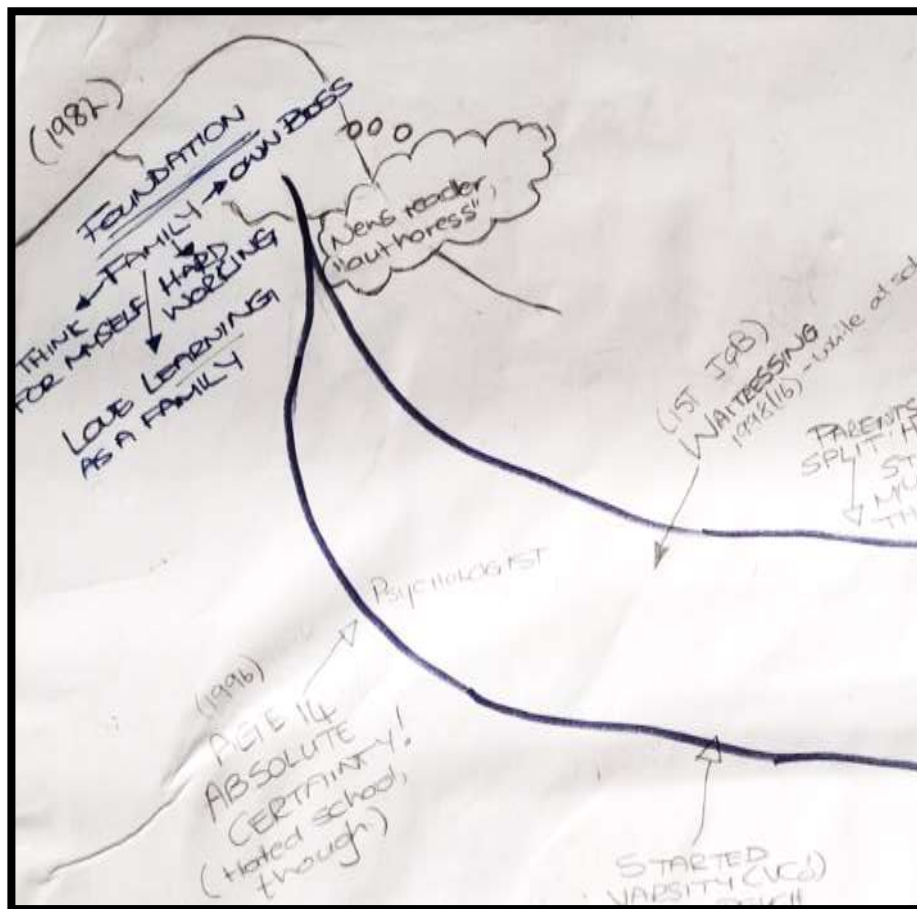 (1982)
FOUNDATION
FAMILY → OWN BOSS
THINK
FOR MYSELF
HARD
WORKING
LOVE LEARNING
AS A FAMILY
News reader,
"authoress"
(1ST JOB)
WAITRESSING
1998 (16) - while at
PARENTS
SPLIT
PSYCHOLOGIST
(1996)
AGE 14
ABSOLUTE
CERTAINTY!
(Hated school,
though)
STARTED
VARSITY
PSYCH